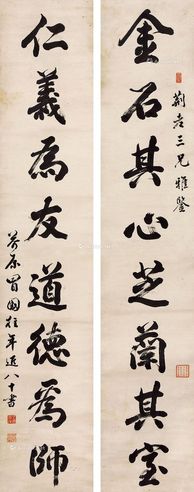 金石其心芝蘭其室
荊老三兄雅鑒
仁義為友道德為師
國柱年近八十書